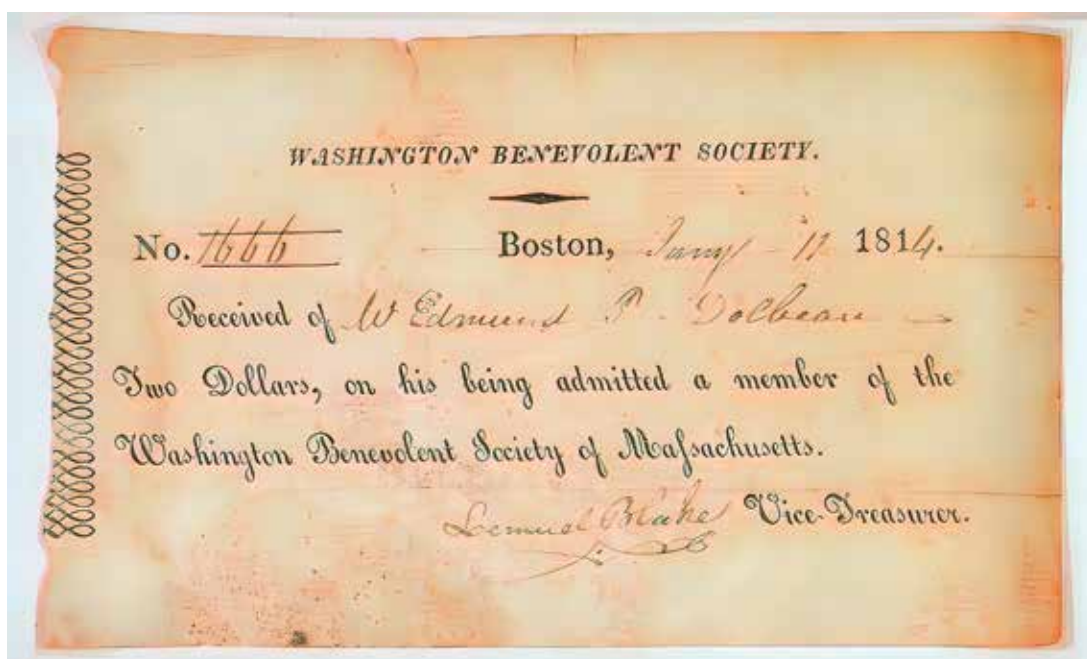 WASHINGTON BENEVOLENT SOCIETY.
No. 1666 Boston, Jany 11 1814.
Received of Mr Edmund P. Dolbeare
Two Dollars, on his being admitted a member of the
Washington Benevolent Society of Maſsachusetts.
Lemuel Blake Vice-Treasurer.